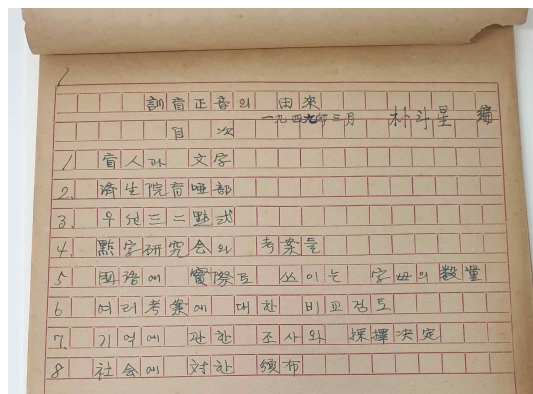 訓盲正音의 由來
一九四九年三月 朴斗星 編
目 次
1. 盲人과 文字
2. 濟生院盲啞部
3. 우선三二點式
4. 點字研究会와 考案들
5 国語에 實際로 쓰이는 字母의 數量
6 여러考案에 대한 비교검토
7. 기억에 관한 조사와 採擇決定
8 社会에 対한 頒布